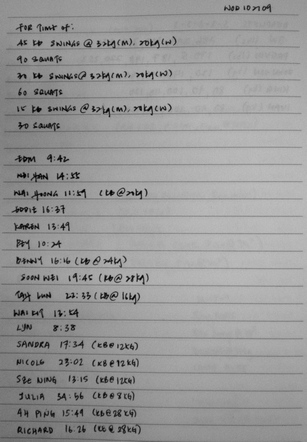 WOD 102709
FOR TIME OF:
45 KB SWINGS @ 32kg(M), 20kg(W)
90 SQUATS
30 KB SWINGS @ 32kg(M), 20kg(W)
60 SQUATS
15 KB SWINGS @ 32kg(M), 20kg(W)
30 SQUATS
9:42
14:55
11:59 (KB@20kg)
16:37
KAREN 13:49
10:24
BENNY 16:16 (KB@24kg)
SOON WEI 19:45 (KB@28kg)
22:33 (KB@16kg)
WAI KIT 13:54
LYN 8:38
SANDRA 17:34 (KB@12KG)
NICOLE 23:02 (KB@12KG)
SZE NING 13:15 (KB@12KG)
JULIA 34:56 (KB@8KG)
PING 15:49 (KB@28KG)
RICHARD 16:26 (KB@28KG)